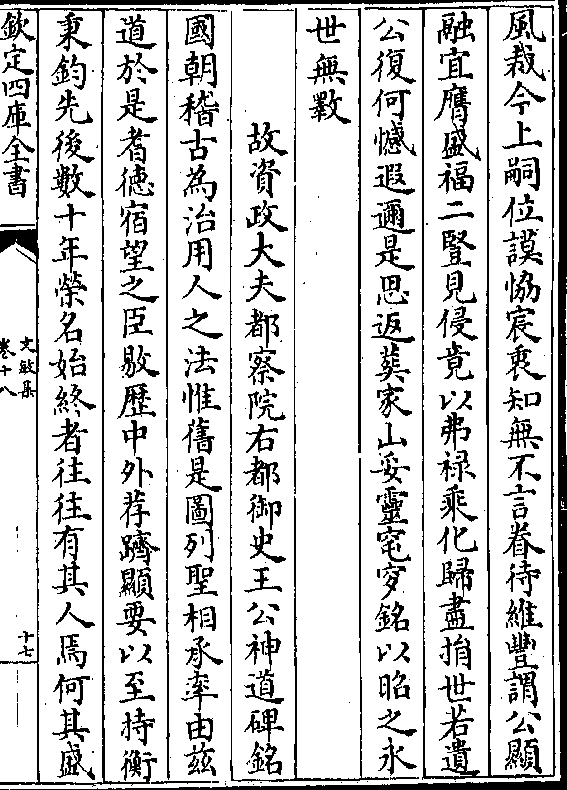 風裁今上嗣位謨恊宸衷知無不言眷待維豐謂公顯
融宜膺盛福二豎見侵竟以弗禄乘化歸盡捐世若遺
公復何憾遐邇是思返𦵏家山妥靈窀穸銘以昭之永
世無斁
故資政大夫都察院右都御史王公神道碑銘
國朝稽古為治用人之法惟舊是圖列聖相承率由兹
道於是耆徳宿望之臣敭歴中外荐躋顯要以至持衡
秉鈞先後數十年榮名始終者往往有其人焉何其盛
欽定四庫全書
文敏集
卷十八
十七